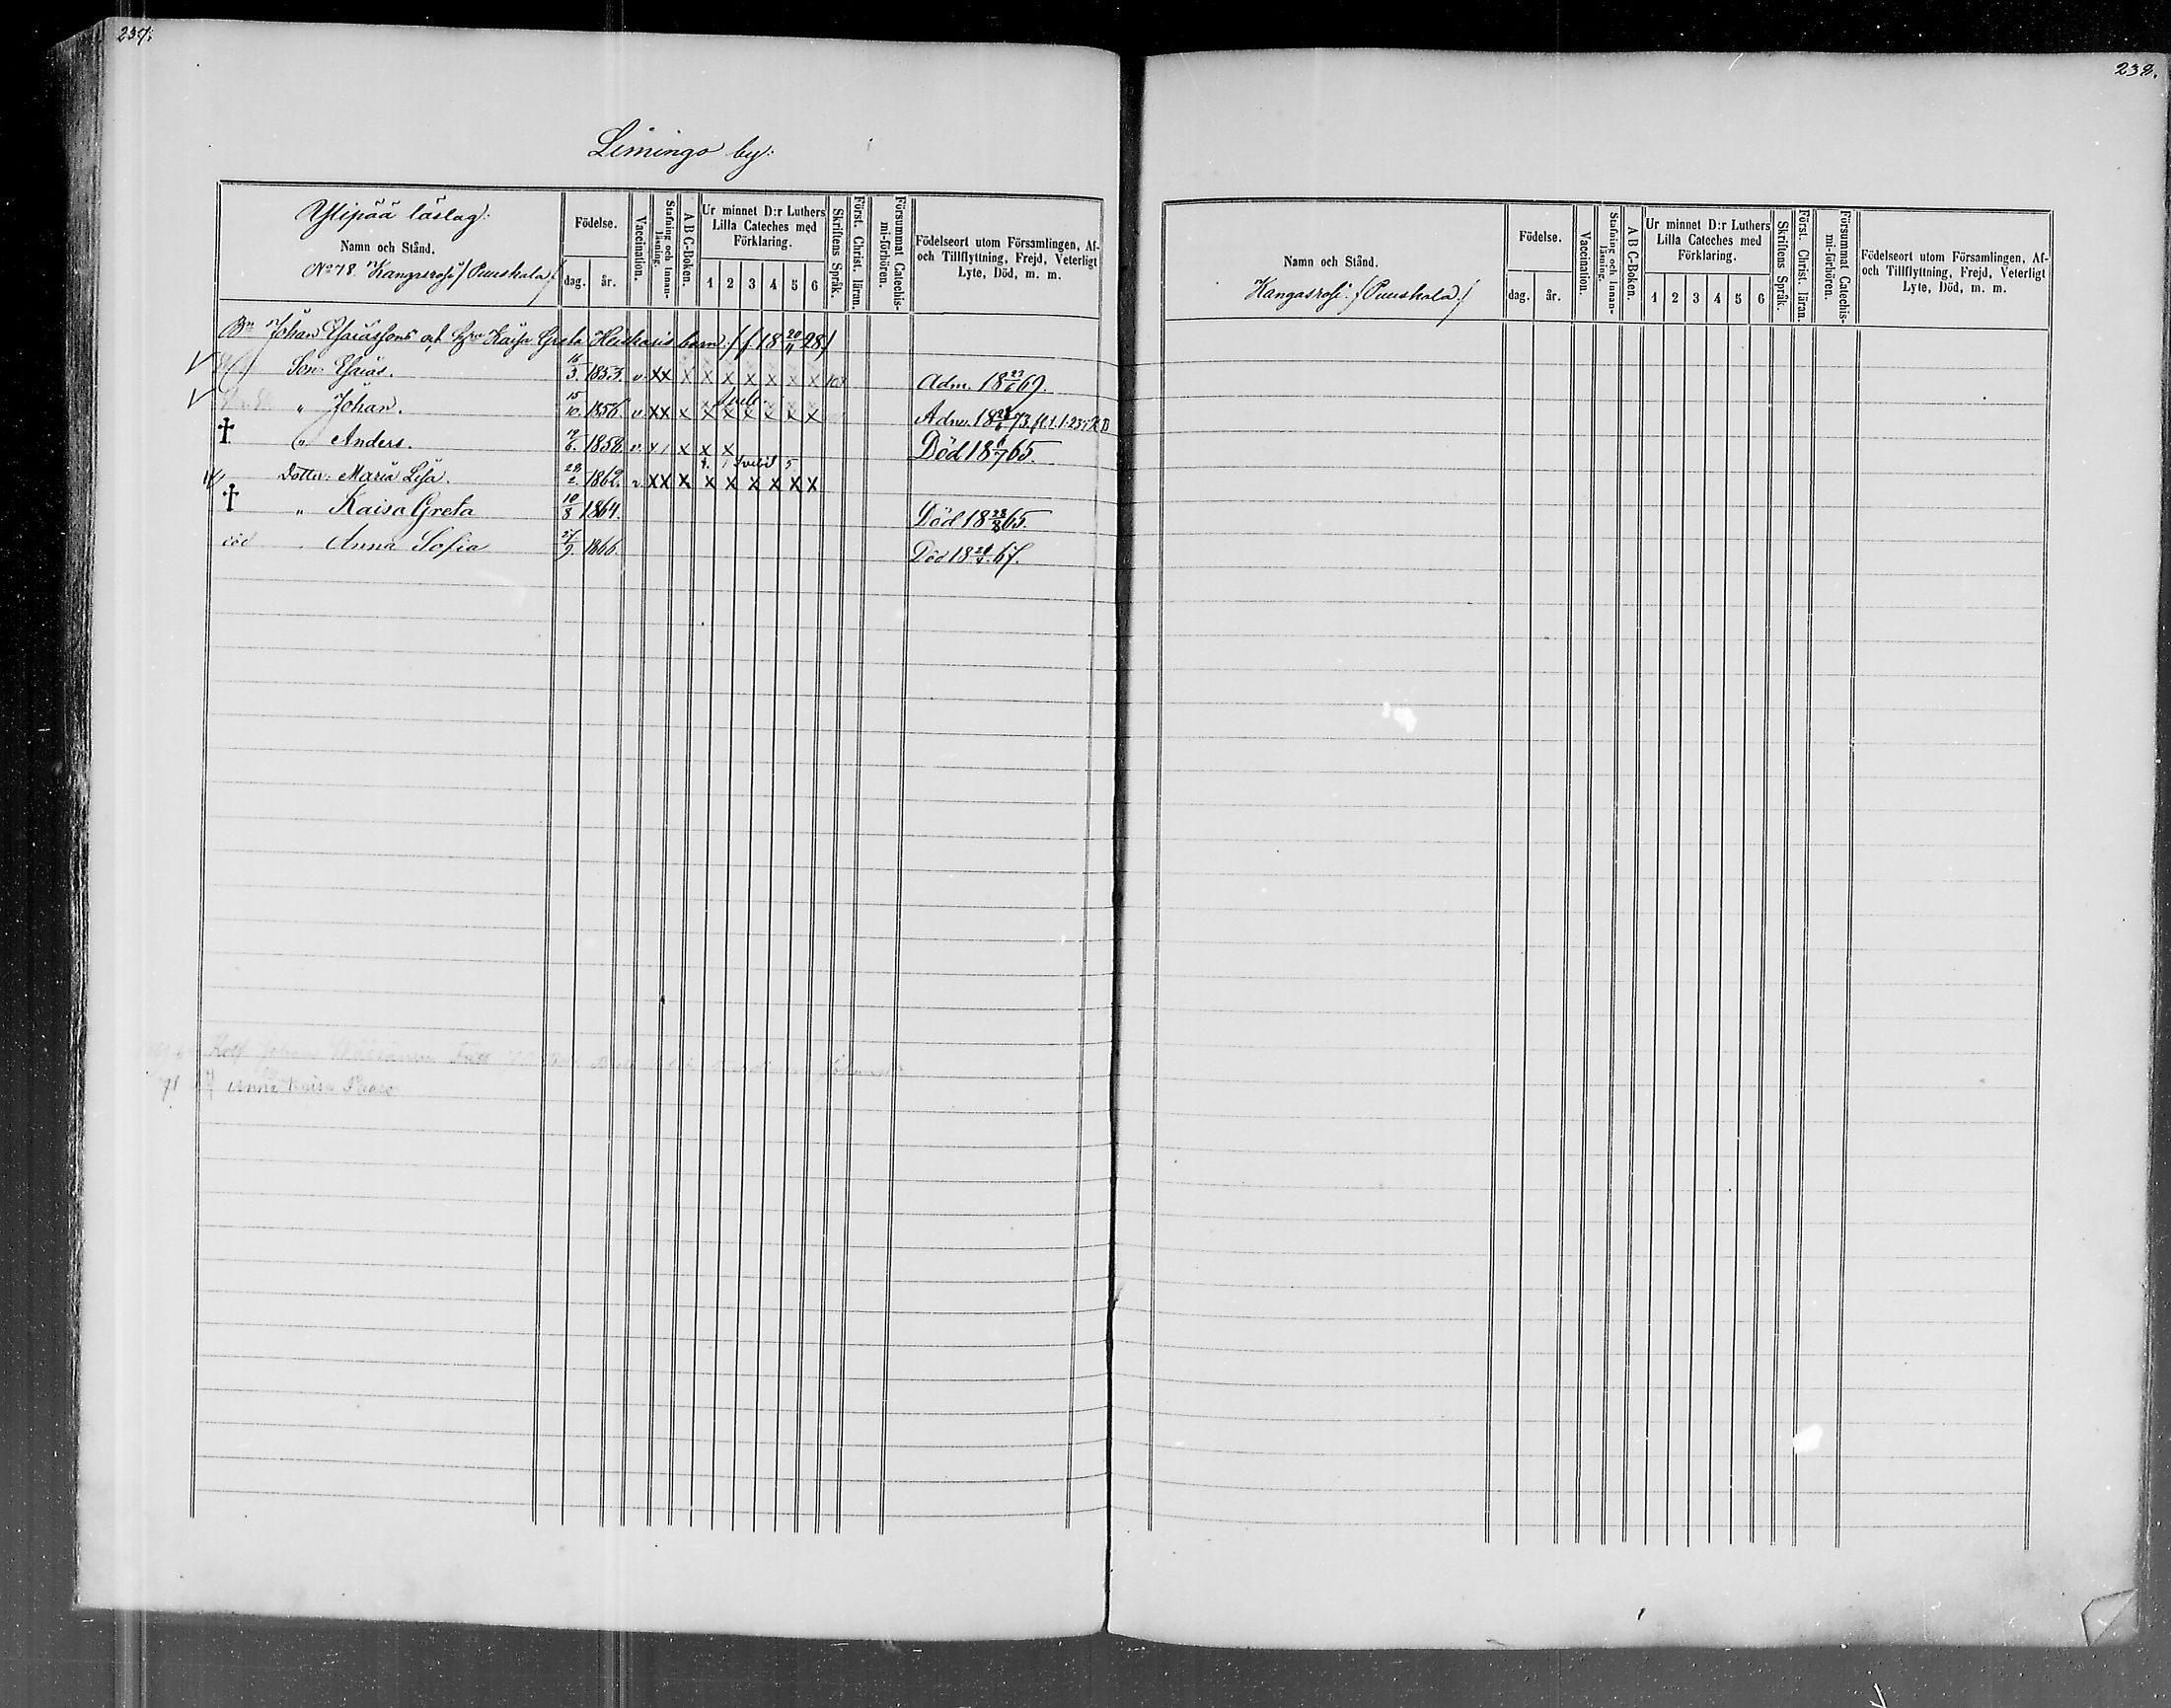 237.
Limingo by:
Ylipää läslag:
Namn och Stånd.
No 78. Kangasroso (Puuskala)
Födelse.
dag. år.
Vaccination.
Stafning och Innanläsning.
A B C-Boken.
Ur minnet D:r Luthers Lilla Cateches med Förklaring.
1 2 3 4 5 6
Skriftens Språk.
Först. Christ. läran.
Försummat Catechismi-förhören.
Födelseort utom Församlingen, Af- och Tillflyttning, Frejd, Veterligt Lyte, Död, m. m.
Bn Johan Esaiassons och Kaisa Greta barn (f 18 20/11 28)
Son Esaias. 16/3. 1853. v. X X X X X X X X X Adm. 18 27/6 69.
" Johan. 15/10. 1856. v. X X X X X X X X X Adm. 18 /6 73.
† " Anders. 19/6. 1858. v. X X X Död 18 6/7 65.
Dotter. Maria Lisa. 28/2. 1862. v. X X X X X X X X X
† " Kaisa Greta 10/8 1864. Död 18 23/8 65.
död Anna Sofia 27/9. 1866. Död 18 67.
71 Anna Kaisa
238.
Namn och Stånd.
Kangasroso. (Puuskala.)
Födelse.
dag. år.
Vaccination.
Stafning och Innanläsning.
A B C-Boken.
Ur minnet D:r Luthers Lilla Cateches med Förklaring.
1 2 3 4 5 6
Skriftens Språk.
Först. Christ. läran.
Försummat Catechismi-förhören.
Födelseort utom Församlingen, Af- och Tillflyttning, Frejd, Veterligt Lyte, Död, m. m.